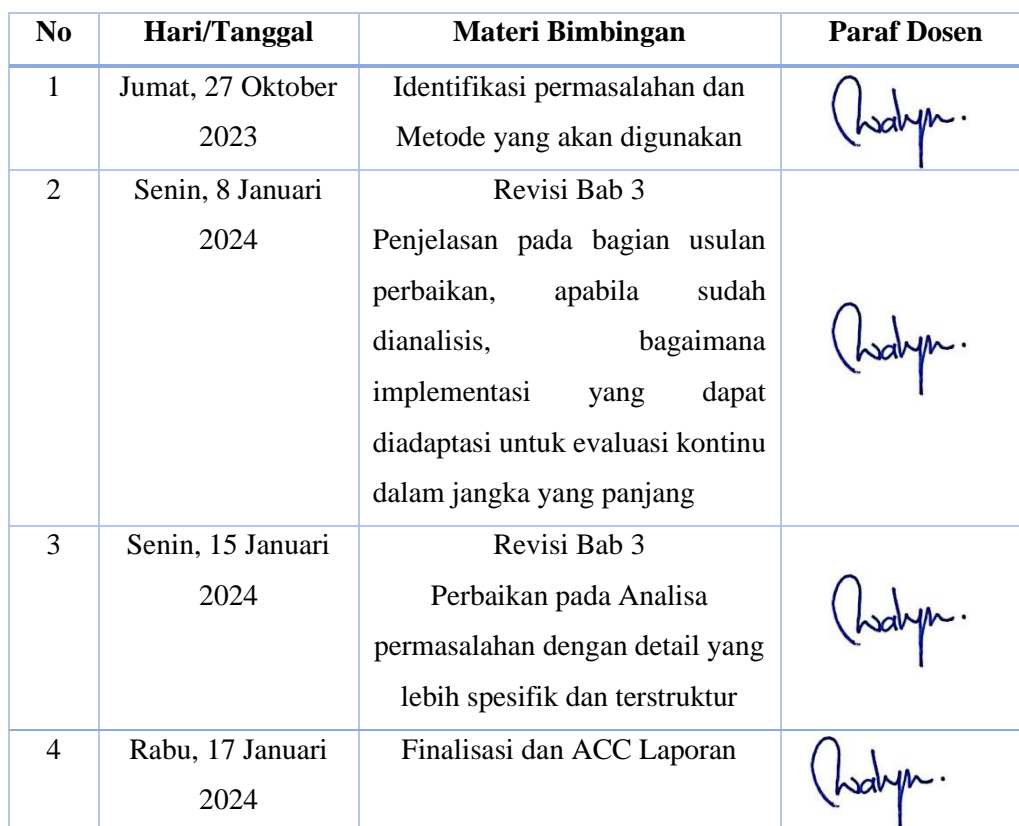 No Hari/Tanggal Materi Bimbingan Paraf Dosen
1 Jumat, 27 Oktober Identifikasi permasalahan dan
2023 Metode yang akan digunakan
2 Senin, 8 Januari Revisi Bab 3
2024 Penjelasan pada bagian usulan
perbaikan, apabila sudah
dianalisis, bagaimana
implementasi yang dapat
diadaptasi untuk evaluasi kontinu
dalam jangka yang panjang
3 Senin, 15 Januari Revisi Bab 3
2024 Perbaikan pada Analisa
permasalahan dengan detail yang
lebih spesifik dan terstruktur
4 Rabu, 17 Januari Finalisasi dan ACC Laporan
2024